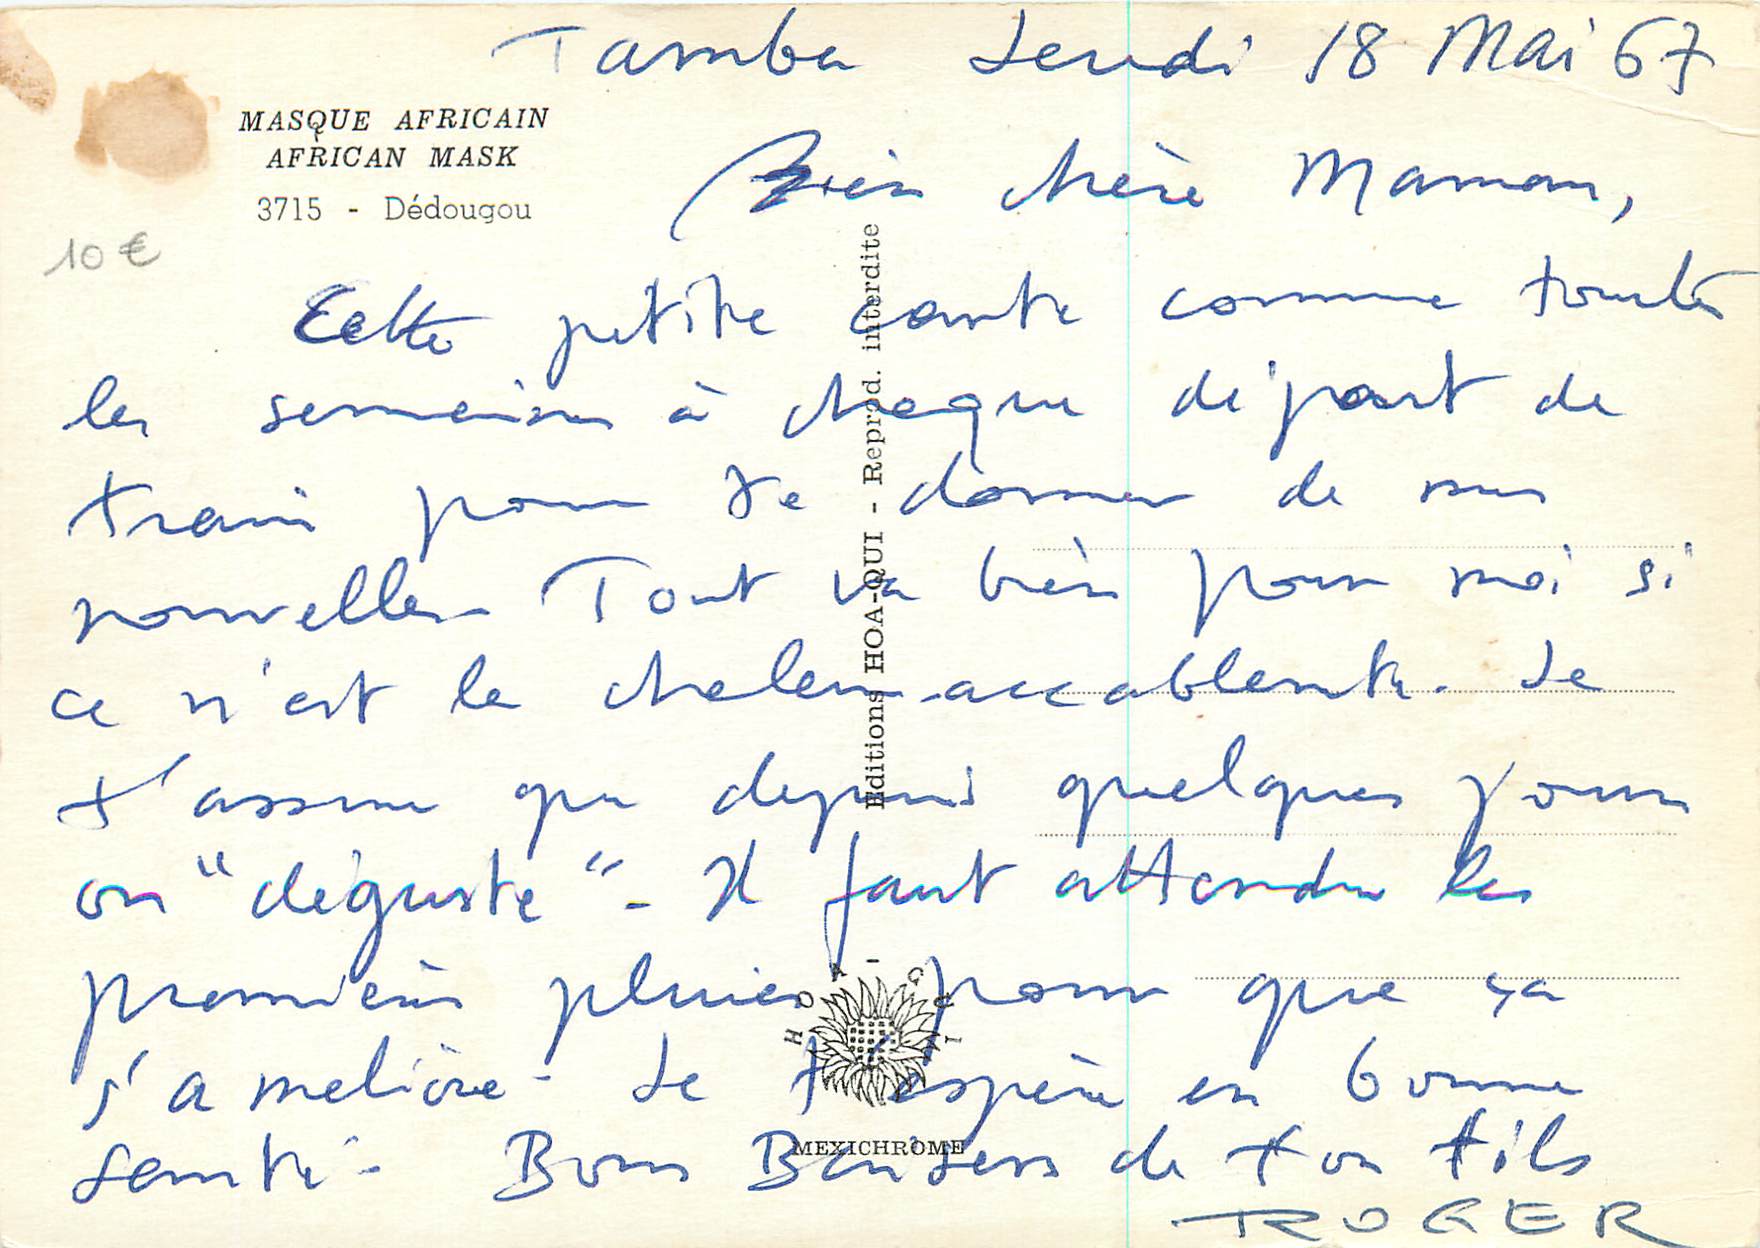 Tamba Jeudi 18 Mai 67
MASQUE AFRICAIN
AFRICAN MASK
3715 - Dédougou
10 €
Bien chère Maman,
Cette petite carte comme toutes
les semaines à chaque départ de
train pour te donner de mes
nouvelles Tout va bien pour moi si
ce n'est la chaleur accablante. Je
t'assure que depuis quelques jours
on "déguste" - Il faut attendre les
premières pluies pour que ça
s'améliore - Je t'espère en bonne
santé - Bons Baisers de ton fils
ROGER
Editions HOA-QUI - Reprod. interdite
HOA-QUI
MEXICHROME